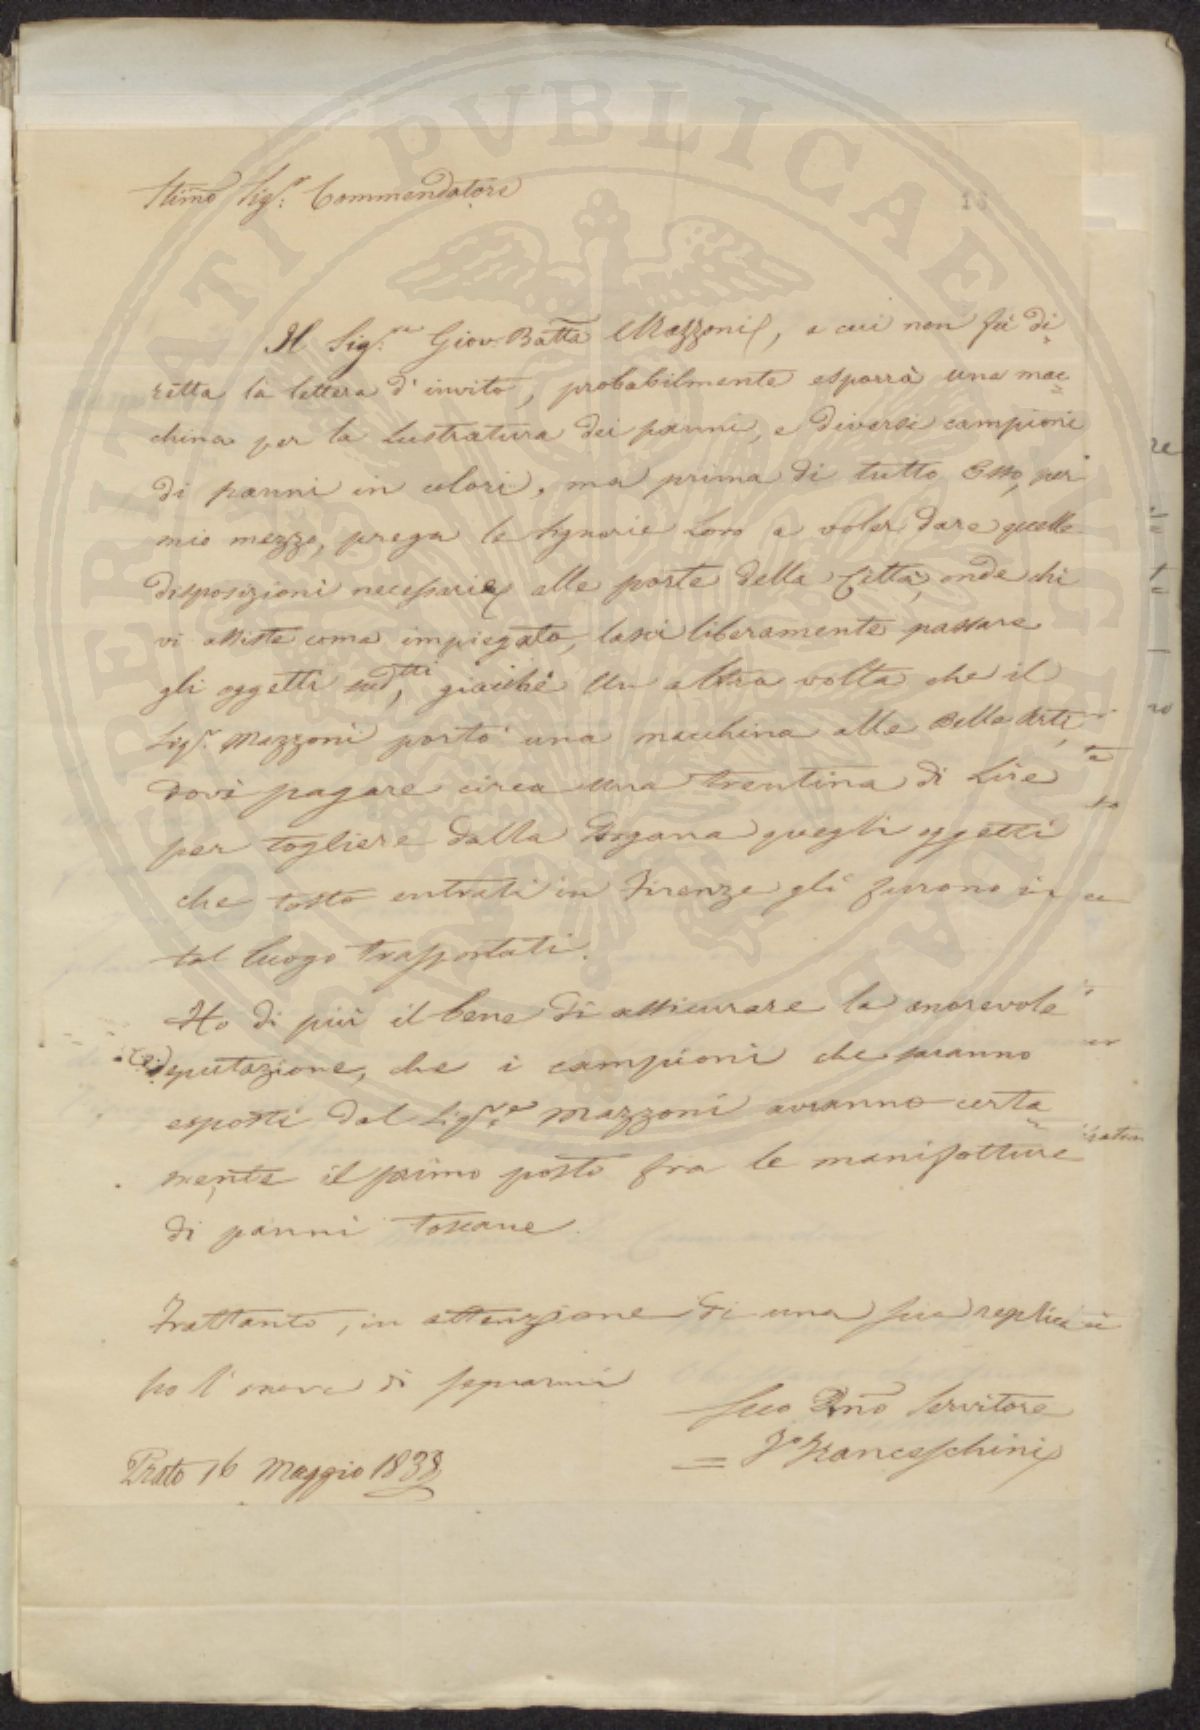 Stimo Sigr. Commendatore
13
Il Sigre. Giov. Batta Mazzoni, a cui non fù di
retta la lettera d'invito, probabilmente esporrà una mac
china per la Lustratura dei panni, e diversi campioni
di panni in colori, ma prima di tutto Esso, per
mio mezzo, prega le Signorie Loro a voler dare quelle
disposizioni necessarie alle porte della Città, onde chi
vi assiste come impiegato, lasci liberamente passare
gli oggetti sudtti, giacchè un altra volta che il
Sigr. Mazzoni portò una macchina alle Belle Arti,
dovè pagare circa una trentina di Lire
per togliere dalla Dogana quegli oggetti
che tosto entrati in Firenze gli furono in
tal luogo trasportati.
Ho di più il bene di assicurare la onorevole
Deputazione, che i campioni che saranno
esposti dal Sigre. Mazzoni avranno certa
mente il primo posto fra le manifatture
di panni Toscane.
Frattanto, in attenzione di una sua replica
ho l'onore di segnarmi
Suo Dmo Servitore
F. Franceschini
Prato 16 Maggio 1838
PROSPERITATI PVBLICAE